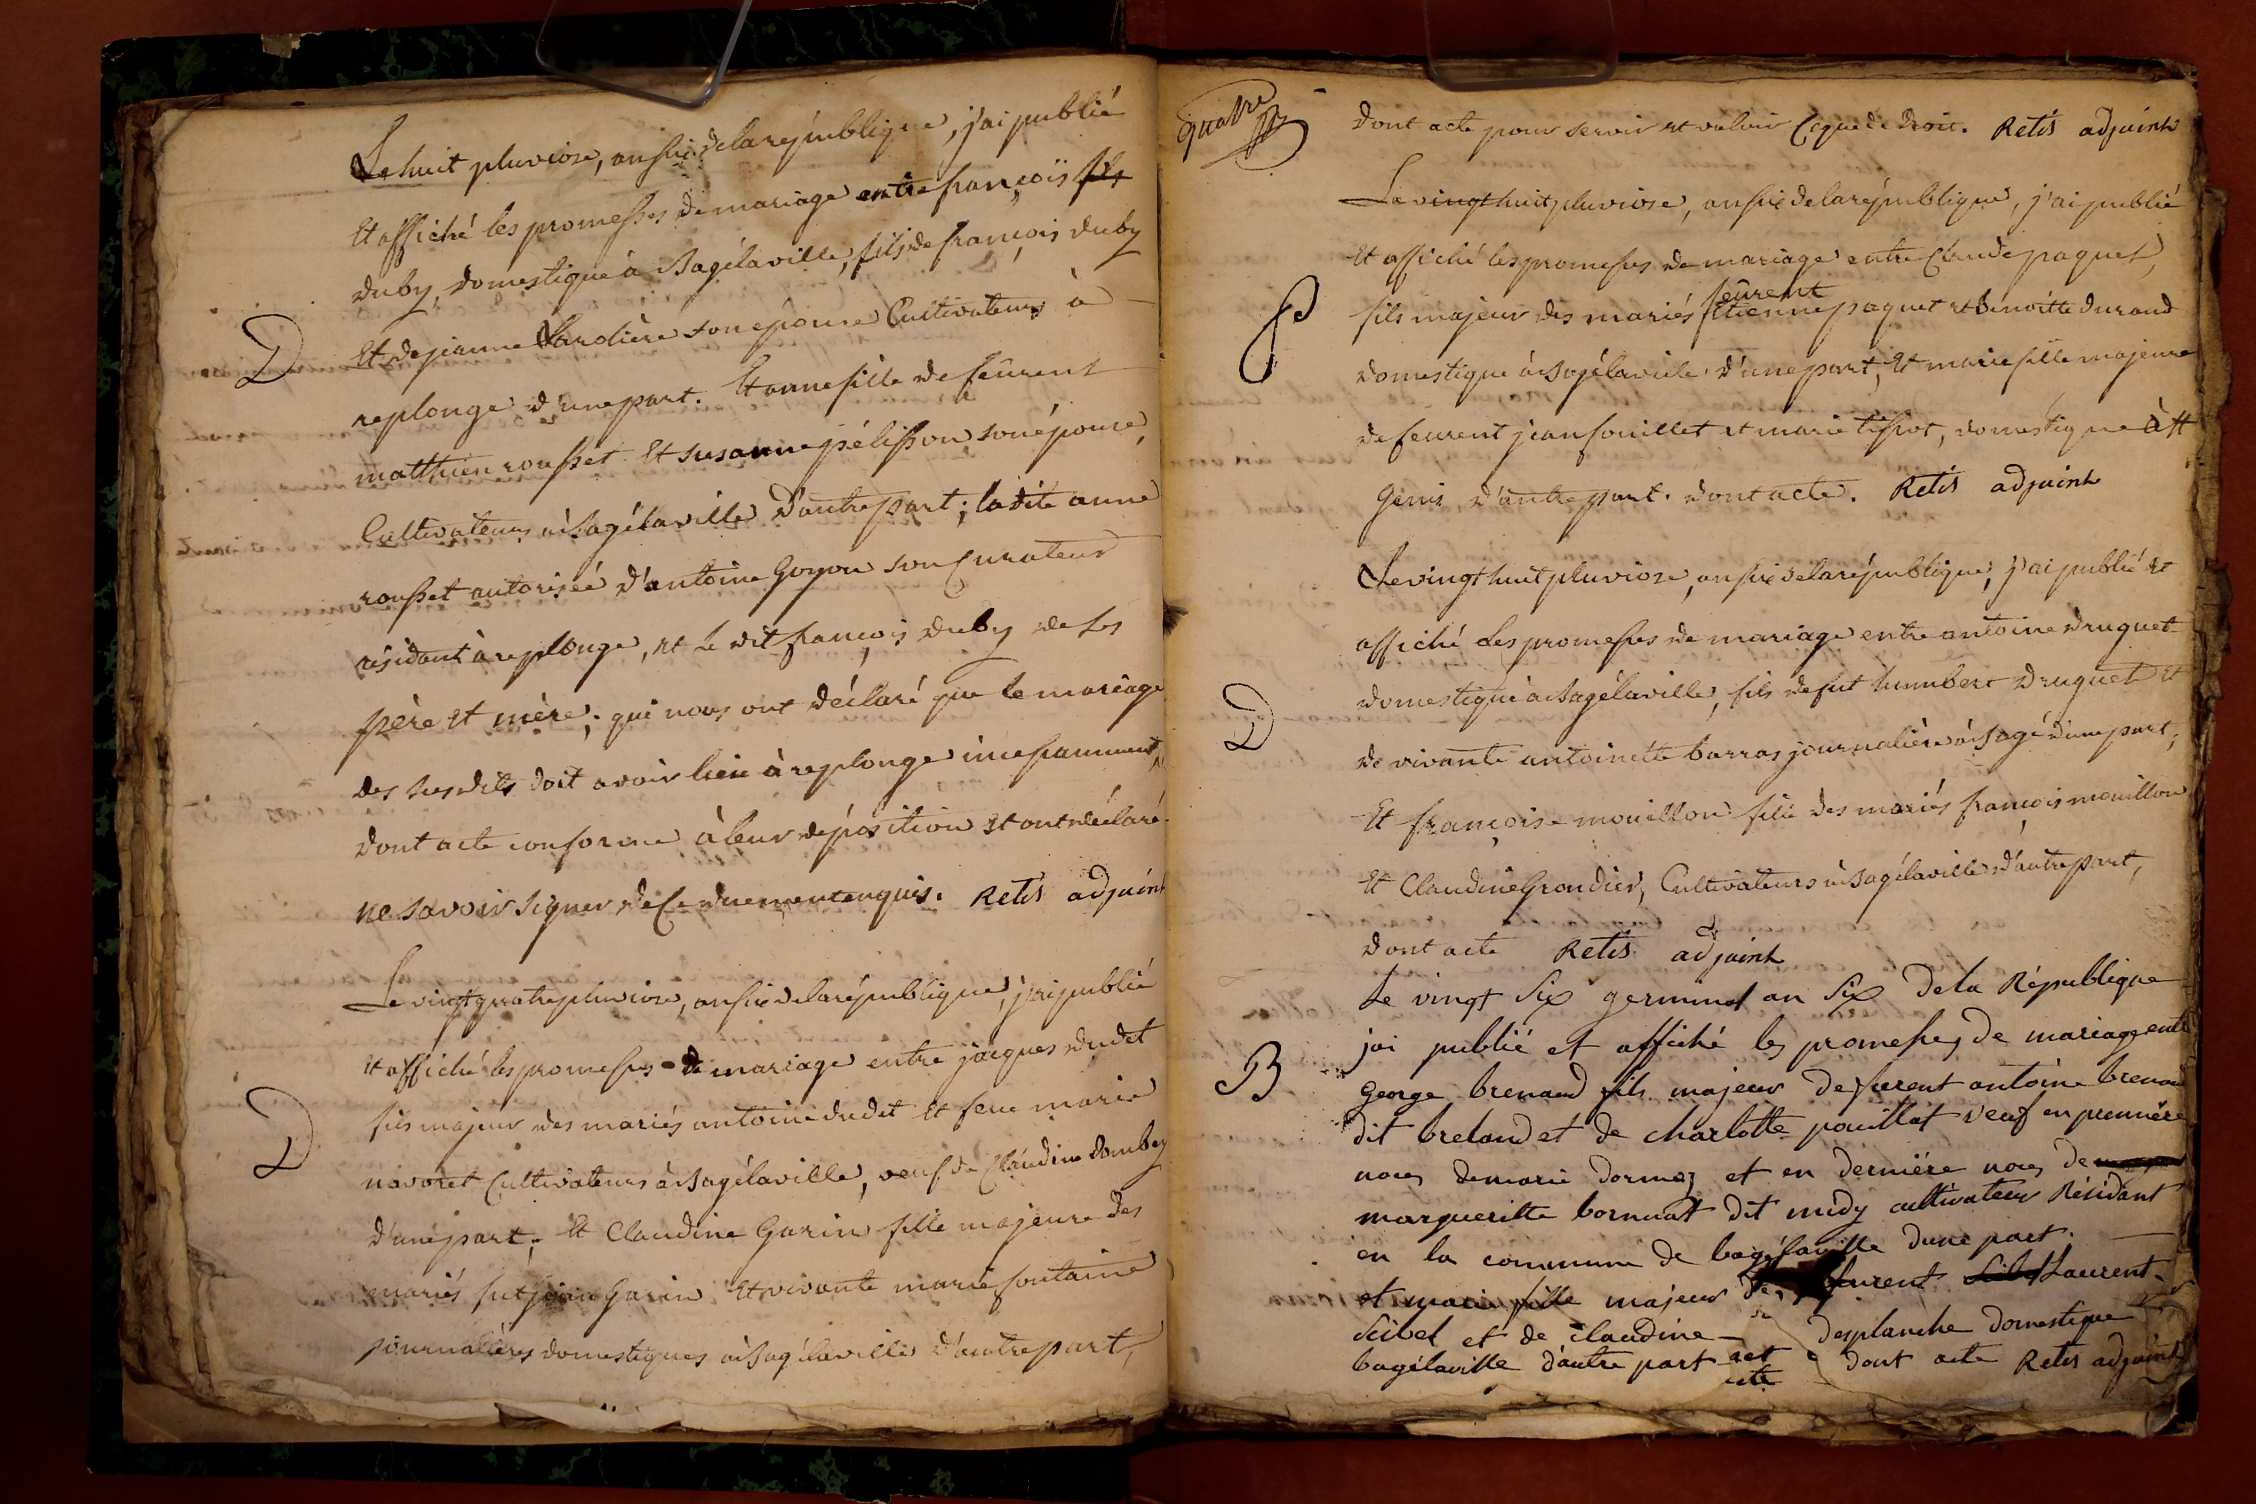 Le huit pluviose, an six de la république, j'ai publié
Et affiché les promesses de mariage entre françois fils
duby, domestique à Bagélaville, fils de françois duby
D
Et de jeanne Varolière son épouse Cultivateurs à
replonge d'une part. Et anne fille de feürent
matthieu rousset Et susanne pélisson son épouse,
Cultivateurs à Bagélaville D'autre part; ladite anne
rousset autorisée d'antoine Goyon son Curateur
résidant à replonge, et le dit françois duby de ses
père et mère; qui nous ont déclaré que le mariage
des susdits doit avoir lieu à replonge incessamment,
dont acte conforme à leur déposition Et ont déclaré
ne savoir signer de ce duement enquis. Retis adjoint
Le vingt quatre pluviose, an six de la république, j'ai publié
et affiché les promesses de mariage entre jacques dudet
D
fils majeur des mariés antoine dudet Et feue marie
navoret Cultivateurs à Bagélaville, veuf de Claudine Dombey
d'une part; Et Claudine Garin fille majeure des
mariés fut jean Garin Et vivante marie fontaine
journalières domestiques à Bagélaville D'autre part,
quatre
dont acte pour servir et valoir Ce que de droit. Retis adjoint
Le vingt huit pluviose, an six de la république, j'ai publié
Et affiché les promesses de mariage entre Claude paquet,
P
feürent
fils majeur des mariés Etienne paquet et Benoitte durand
domestique à Bagélaville d'une part, Et marie fille majeure
de feurent jean fouillet et marie tissot, domestique à st
Genis d'autre part. dont acte. Retis adjoint
Le vingt huit pluviose, an six de la république, j'ai publié et
affiché les promesses de mariage entre antoine druguet
D
domestique à Bagélaville, fils de fut humbert Druguet Et
de vivante antoinette barras journalière à Bagé d'une part;
Et françoise mouillon fille des mariés françois mouillon
Et Claudine Grondier, Cultivateurs à Bagélaville d'autre part,
dont acte Retis adjoint
Le vingt Six germinal an Six De la République
B
jai publié et affiché les promesses de mariage entre
george brenaud fils majeur de furent antoine brenaud
dit breland et de charlotte pouillat veuf en première
noces de marie dormez et en dernière noces de
margueritte bornuat dit midy cultivateur Résidant
en la commune de bagélaville dune part.
et marie fille majeur de furent Laurent
Scibel et de claudine desplanche domestique
bagélaville dautre part dont acte Retis adjoint